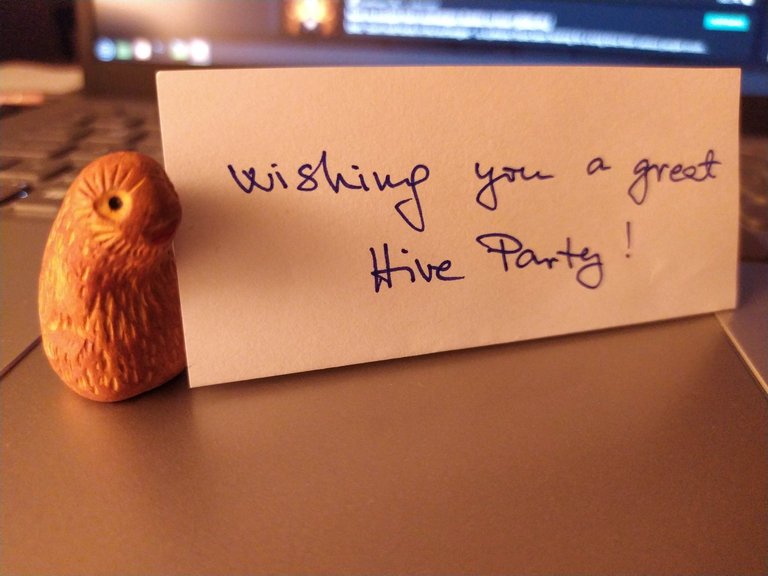 wishing you a great
Hive Party!